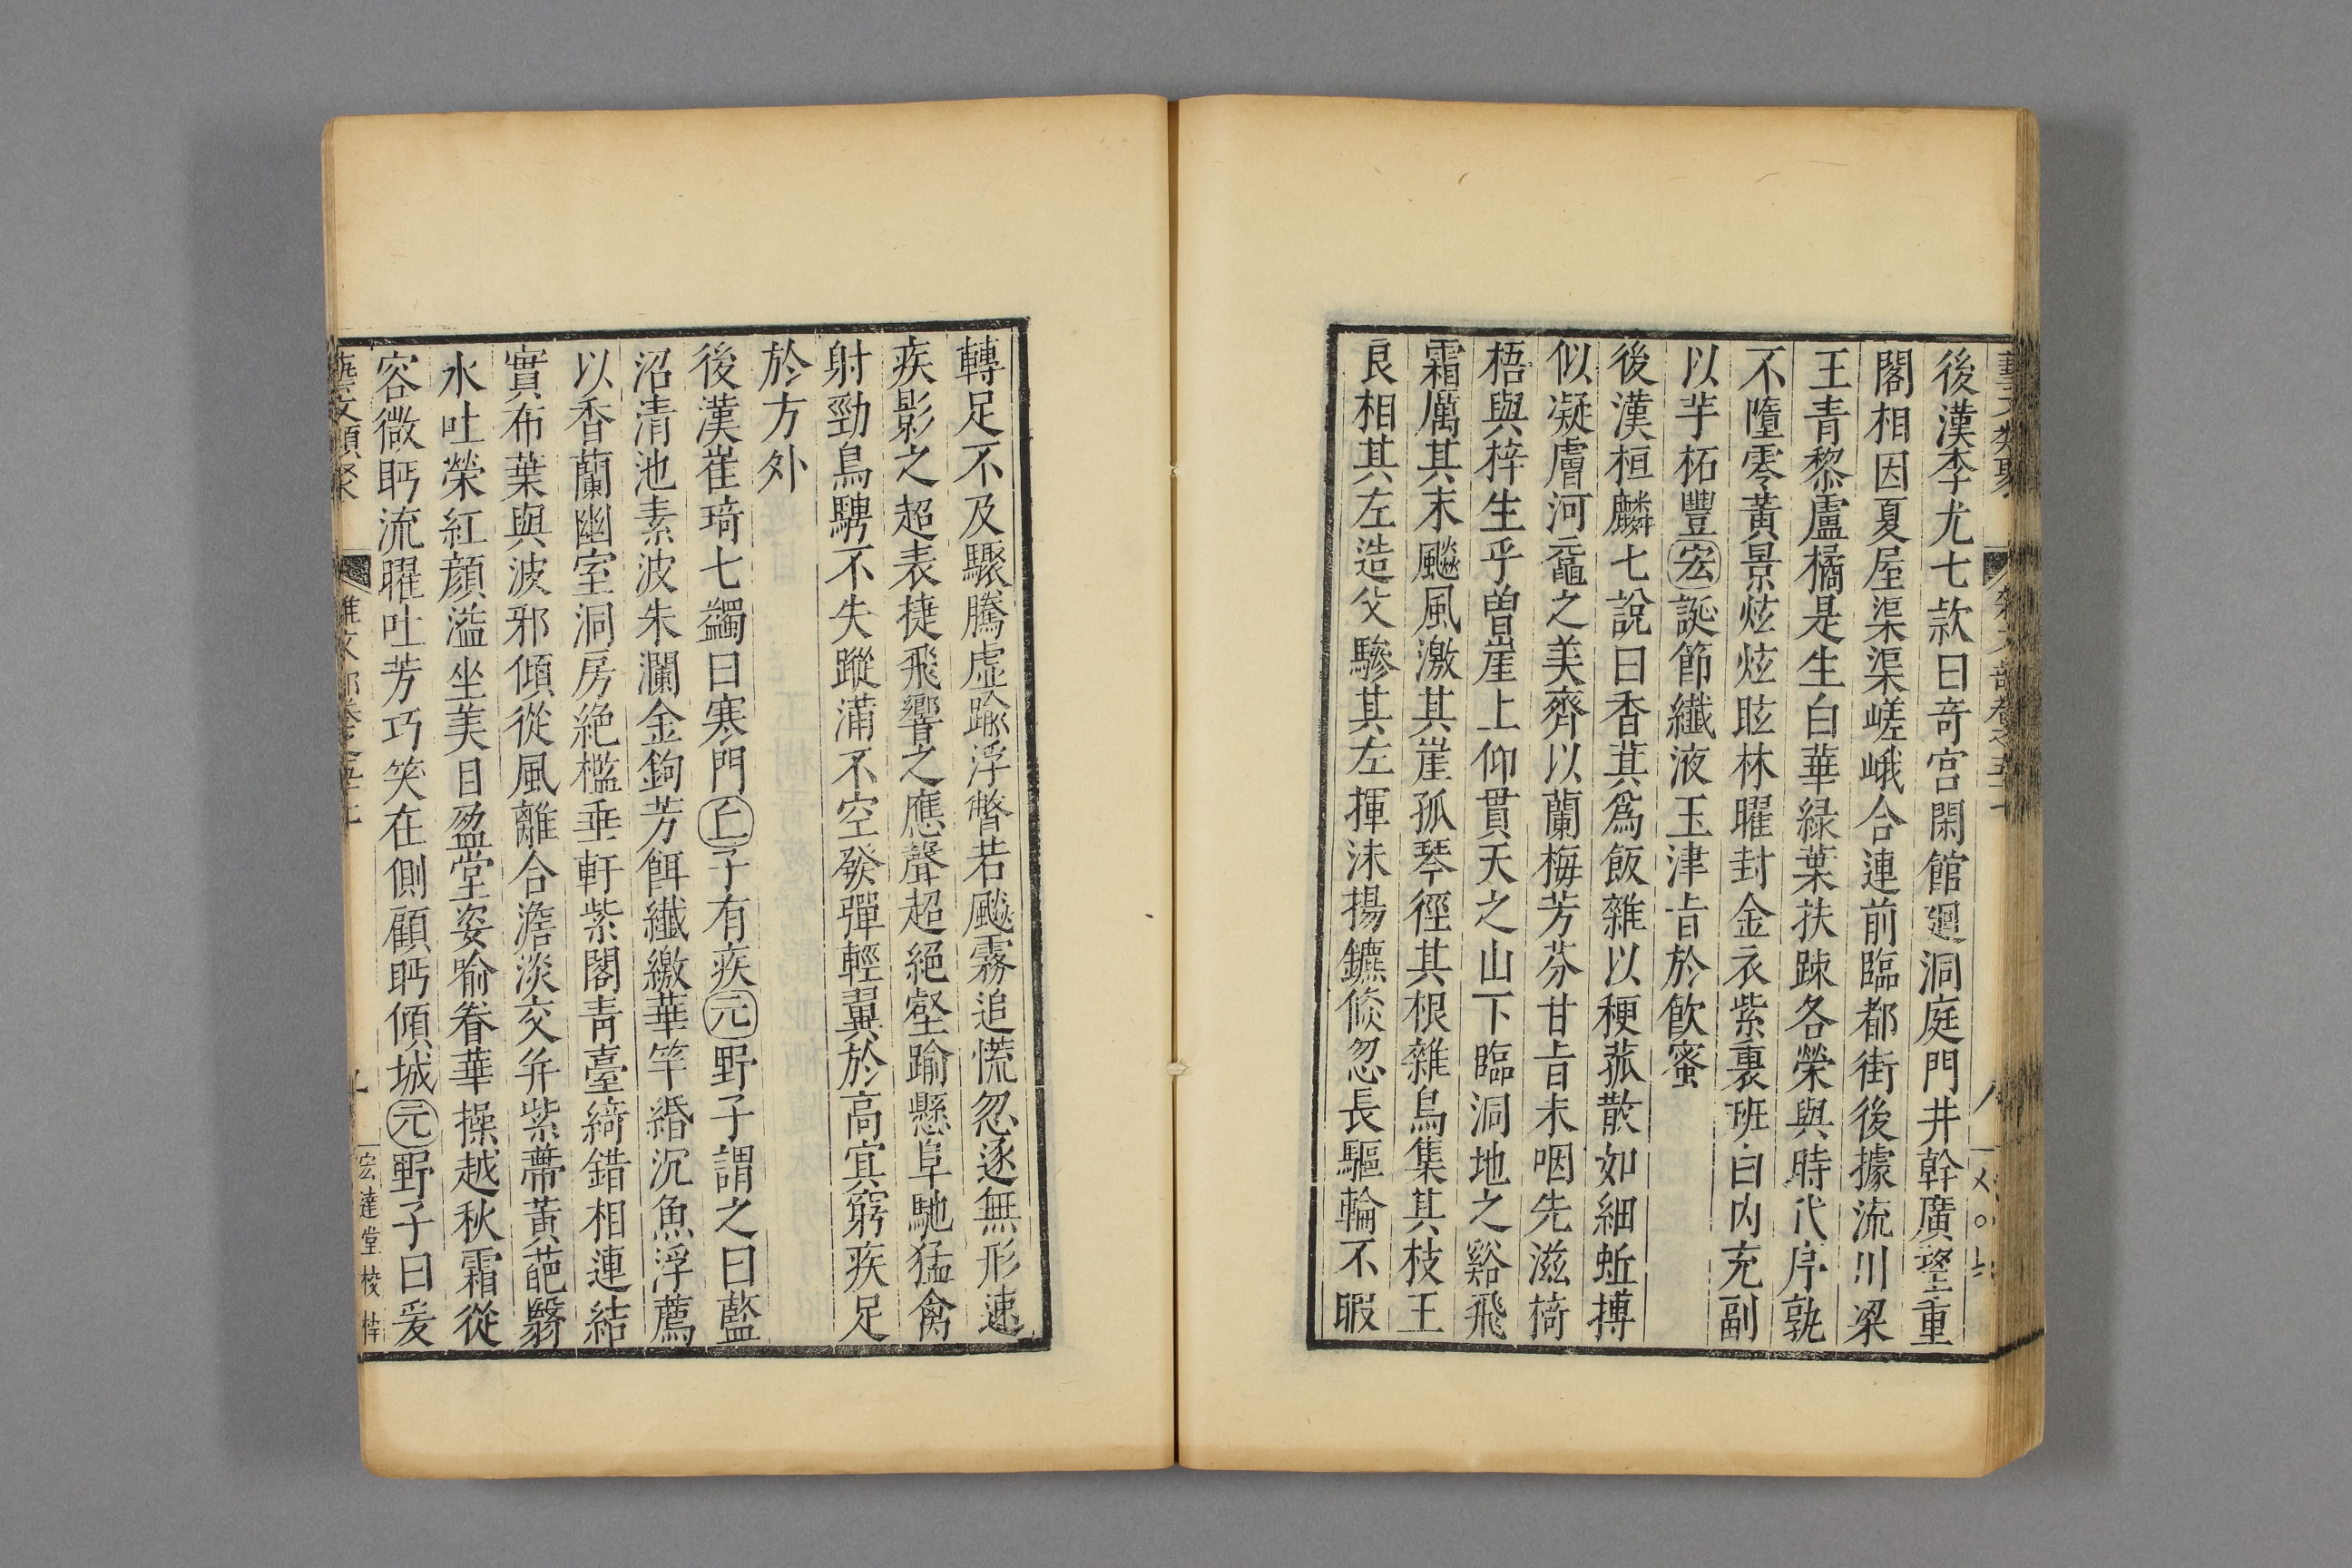 後漢李尤七款曰奇宮閑館迴洞庭門井幹廣望重
閣相因夏屋渠渠嵯峨合連前臨都街後據流川梁
王青黎盧橘是生白華綠葉扶疎各榮與時代序孰
不墮零黃景炫炫眩林曜封金衣紫裏班白內充副
以芋柘豐宏誕節纖液玉津旨於飲蜜
後漢桓麟七說曰香萁爲飯雜以粳菰散如細蚳搏
似凝膚河黿之美齊以蘭梅芳芬甘旨未咽先滋椅
梧與梓生乎曾崖上仰貫天之山下臨洞地之谿飛
霜厲其末飈風激其崖孤琴徑其根雜鳥集其枝王
良相其左造父驂其左揮沬揚鑣倐忽長驅輪不暇
轉足不及驟騰虛踰浮瞥若颷霧追慌忽逐無形速
疾影之超表捷飛響之應聲超絕壑踰懸阜馳猛禽
射勁鳥騁不失蹤滿不空發彈輕翼於高寘窮疾足
於方外
後漢崔琦七蠲曰寒門丘子有疾元野子謂之曰藍
沼清池素波朱瀾金鉤芳餌纖繳華竿緡沉魚浮薦
以香蘭幽室洞房絶檻垂軒紫閣青臺綺錯相連結
實布葉與波邪傾從風離合澹淡交并紫蔕黃葩翳
水吐榮紅顏溢坐美目盈堂姿喻春華操越秋霜從
容微眄流曜吐芳巧笑在側顧眄傾城元野子曰爰
藝文類聚
雜文部卷之五十七
宏達堂校梓